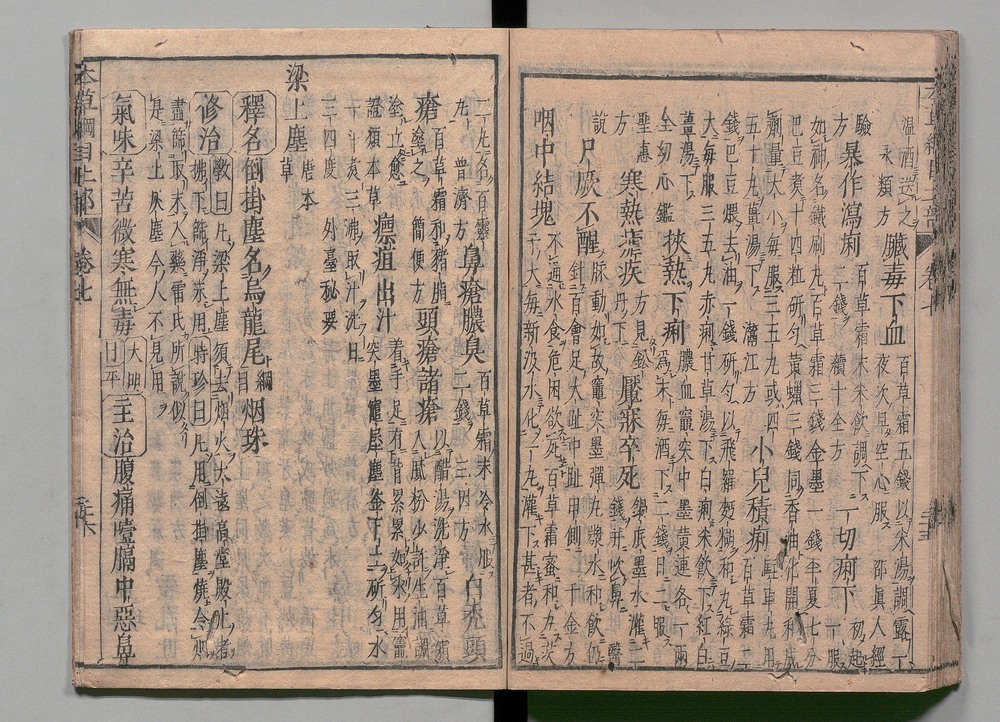 臟毒下血 百草霜五錢以米湯調露一
溫酒送之 夜次早空心服 邵真人經
永類方
驗 暴作瀉痢 百草霜末米飲調下 一切痢下 初起一服
方 二錢 續十全方
如神名鐵刷丸百草霜三錢金墨一錢半夏七分
巴豆煮十四粒研勻黃蠟三錢同香油化開和成
劑量大小每服三五丸或四 小兒積痢 駐車丸用
五十丸薑湯下 濳江方 百草霜二
錢巴豆煨去油一錢研勻以飛羅麪糊和丸綠豆
大每服三五丸赤痢甘草湯下白痢米飲下紅白
薑湯下 挾熱下痢 膿血竈突中墨黃連各一兩
全幼心鑑 爲末每酒下二錢日二服
聖惠 寒熱瘧疾 方見鉛 魘寐卒死 鍋底墨水灌二
方 丹下 錢并吹鼻 醫
說 尸厥不醒 脈動如故竈突墨彈丸漿水和飲仍
針百會足大趾中趾甲側 千金方
咽中結塊 不通水食危困欲死百草霜蜜和丸芡
子大每新汲水化一丸灌下甚者不過
二丸名百靈 鼻瘡膿臭 百草霜末冷水服 白禿頭
丸 普濟方 二錢 三因方
瘡 百草霜和豬脂 頭瘡諸瘡 以醋湯洗淨百草霜
塗之 簡便方 入膩粉少許生油調
塗立愈 瘭疽出汁 著手足肩背累累如米用竈
證類本草 突墨竈屋塵釜下土研勻水
一斗煮三沸取汁洗日
三四度 外臺秘要
梁上塵 唐本
草
釋名 倒掛塵名烏龍尾 綱目 烟珠
修治 斅曰凡梁上塵須去烟火大遠高堂殿上者
拂下篩淨末用 時珍曰凡用倒掛塵燒令烟
盡篩取末入藥雷氏所說似
是梁上灰塵今人不見用
氣味 辛苦微寒無毒 大明曰平 主治 腹痛噎膈中惡鼻